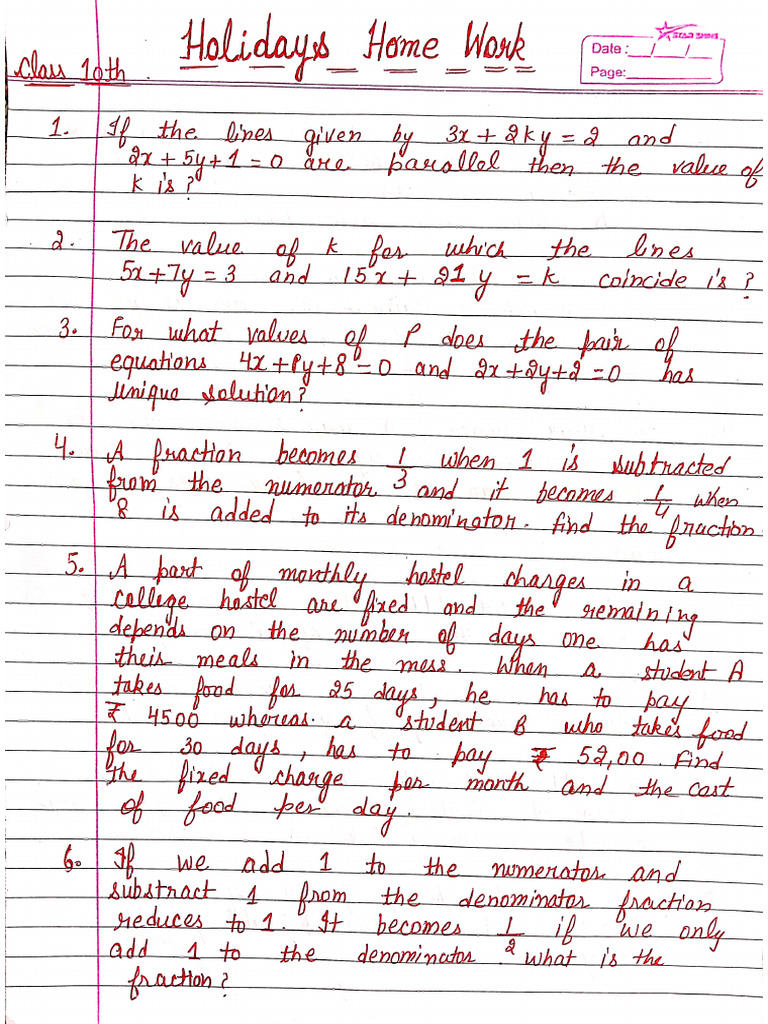 Holidays Home Work
STAR SHINE
Date : __/__/__
Page:
Class 10th.
1. If the lines given by 3x + 2ky = 2 and
2x + 5y + 1 = 0 are parallel then the value of
k is?
2. The value of k for which the lines
5x + 7y = 3 and 15x + 21y = k coincide is?
3. For what values of P does the pair of
equations 4x + Py + 8 = 0 and 2x + 2y + 2 = 0 has
unique solution?
4. A fraction becomes 1/3 when 1 is subtracted
from the numerator and it becomes 1/4 when
8 is added to its denominator. find the fraction
5. A part of monthly hostel charges in a
college hostel are fixed and the remaining
depends on the number of days one has
theis meals in the mess. When a student A
takes food for 25 days, he has to pay
₹ 4500 whereas a student B who takes food
for 30 days, has to pay ₹ 52,00. Find
the fixed charge per month and the cast
of food per day.
6. If we add 1 to the numerator and
substract 1 from the denominator fraction
reduces to 1. It becomes 1/2 if we only
add 1 to the denominator what is the
fraction?